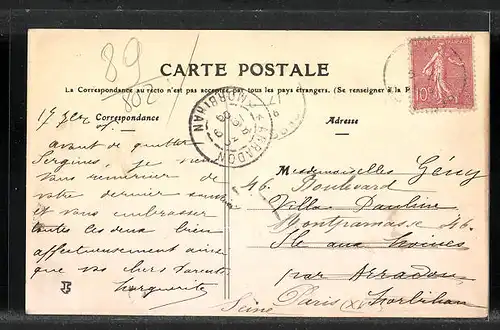 89
802
CARTE POSTALE
La Correspondance au recto n'est pas acceptée par tous les pays étrangers. (Se renseigner à la P
Correspondance
Adresse
10
ARRADON
MORBIHAN
avant de quitter
Sergines, je veux
vous remercier de
votre dernier
et vous embrasser
toutes les deux bien
affectueusement ainsi
que vos chers parents
Marguerite
Mesdemoiselles Gény
46 Boulevard
Villa Pauline
Montparnasse 46
Ile aux Moines
par Arradon
Paris Morbihan
Seine